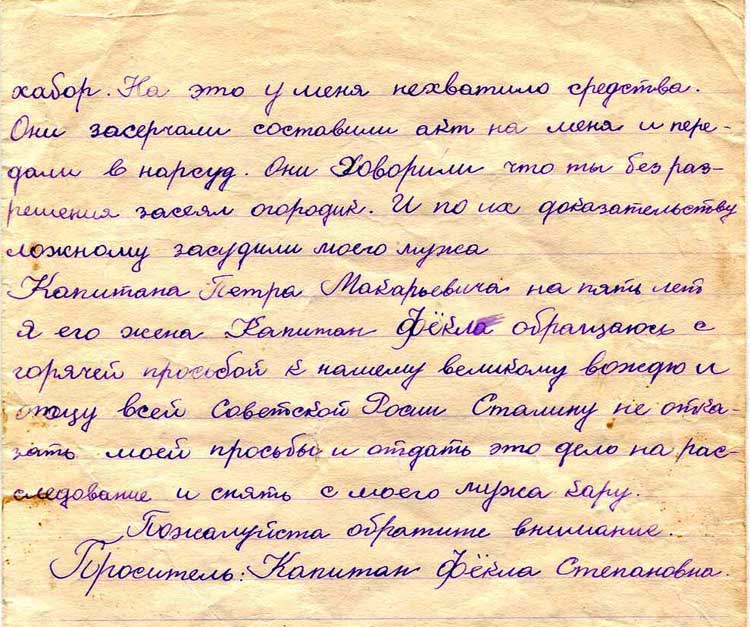 хабор. На это у меня нехватило средства.
Они засерчали составили акт на меня и пере-
дали в нарсуд. Они Ховорили что ты без раз-
решения засеял огородик. И по их доказательству
ложному засудили моего мужа
Капитана Петра Макарьевича на пять лет
Я его жена Капитан Фёкла обращаюсь с
горячей просьбой к нашему великому вождю и
отцу всей Советской Росии Сталину не отка-
зать моей просьбы и отдать это дело на рас-
следование и снять с моего мужа кару.
Пожалуйста обратите внимание.
Проситель: Капитан Фёкла Степановна.